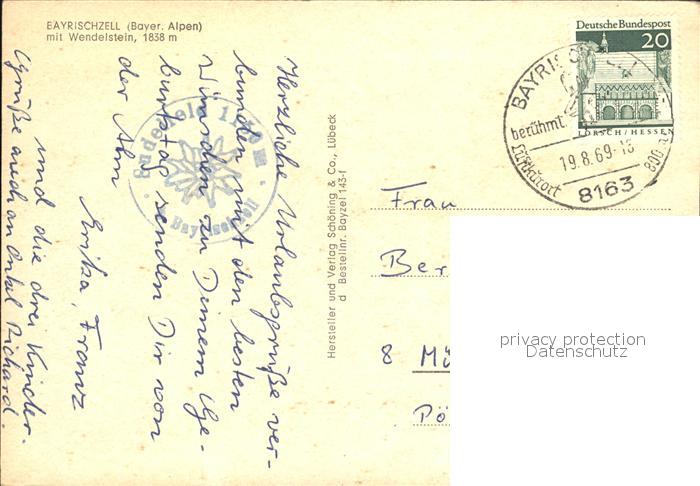 BAYRISCHZELL (Bayer. Alpen)
mit Wendelstein, 1838 m
Herzliche Urlaubsgrüße ver-
bunden mit den besten
Wünschen zu Deinem Ge-
burtstag senden Dir von
der Alm
Erika, Franz
und die drei Kinder.
Grüße auch an Onkel Richard.
Bayrischzell
Hersteller und Verlag Schöning & Co., Lübeck
d Bestellnr. Bayzel 143-f
Deutsche Bundespost
20
LORSCH/HESSEN
BAYRISC
berühmt.
Luftkurort
19.8.69-18
800 m
8163
Frau
Ber
8 Mü
Pö
privacy protection
Datenschutz